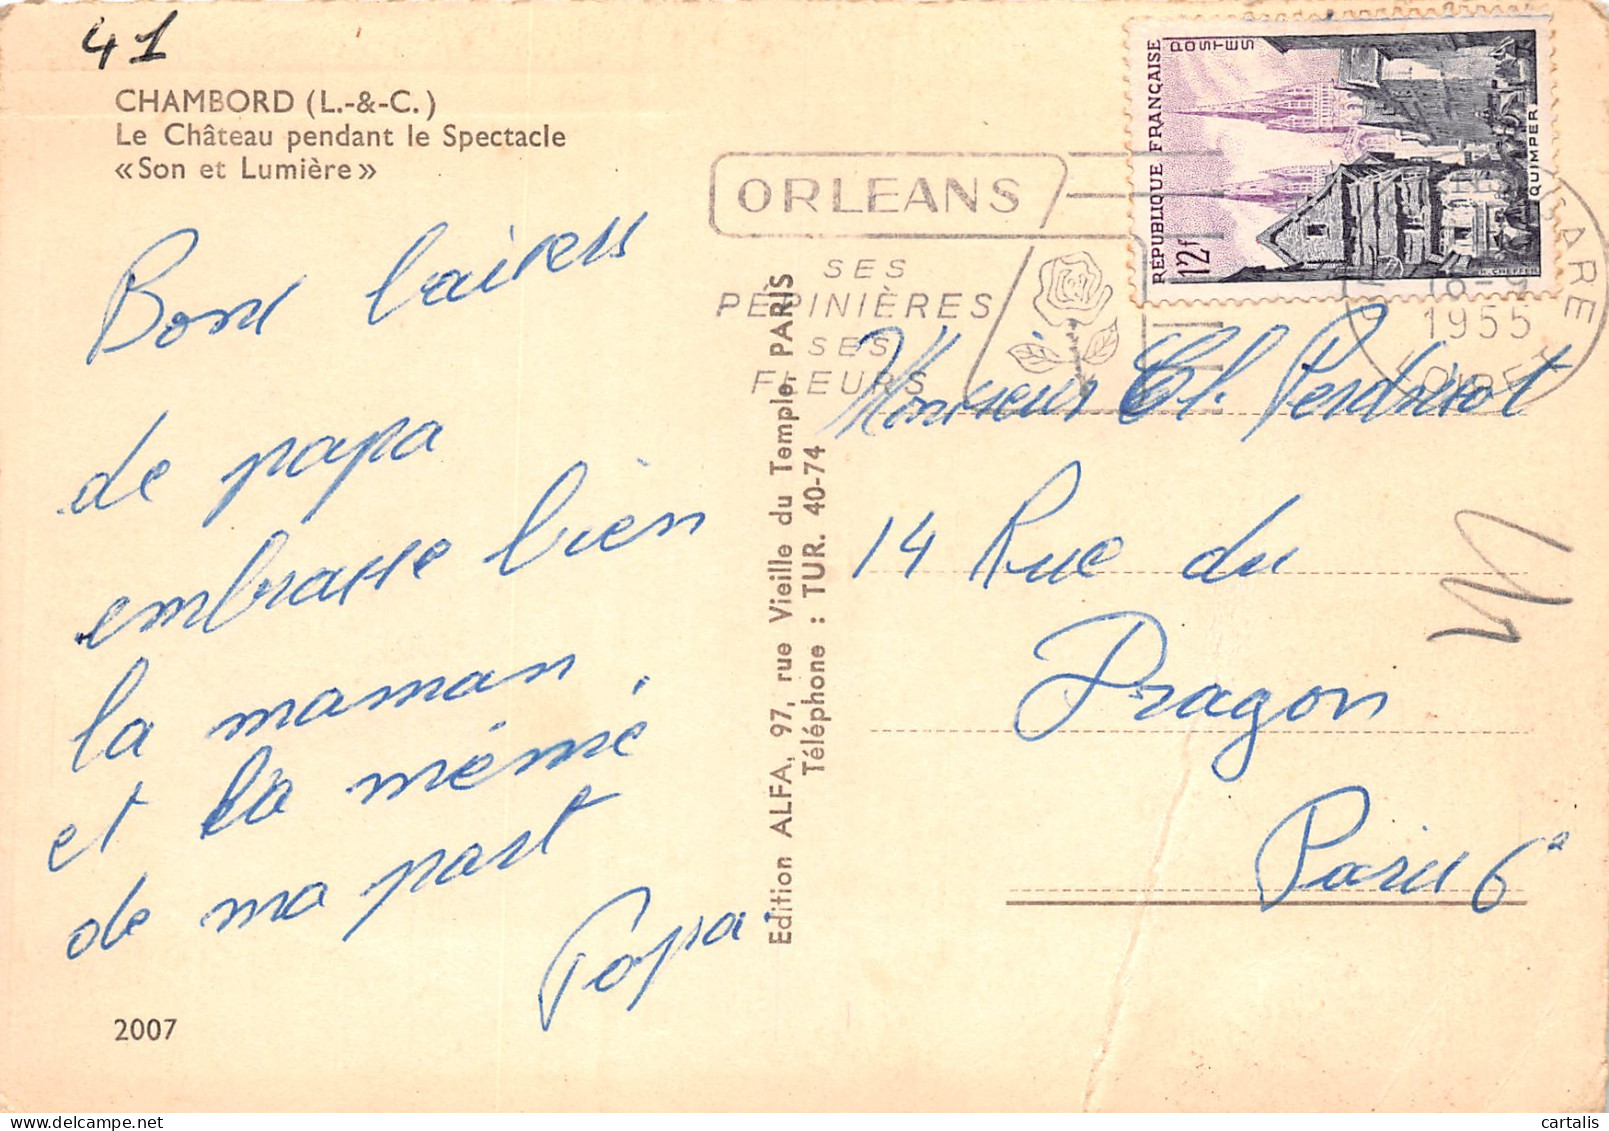 41
CHAMBORD (L.-&-C.)
Le Château pendant le Spectacle
«Son et Lumière»
Bons baisers
de papa
embrasse bien
la maman,
et la mémé
de ma part
Papa.
2007
Edition ALFA, 97, rue Vieille du Temple, PARIS
Téléphone : TUR. 40-74
ORLEANS
SES
PÉPINIÈRES
SES
FLEURS
RÉPUBLIQUE FRANÇAISE
POSTES
12f
QUIMPER
R. CHEFFER
GARE
1955
LOIRET
Monsieur Cl. Perdriot
14 Rue du
Dragon
Paris 6e
cartalis
delcampe.net